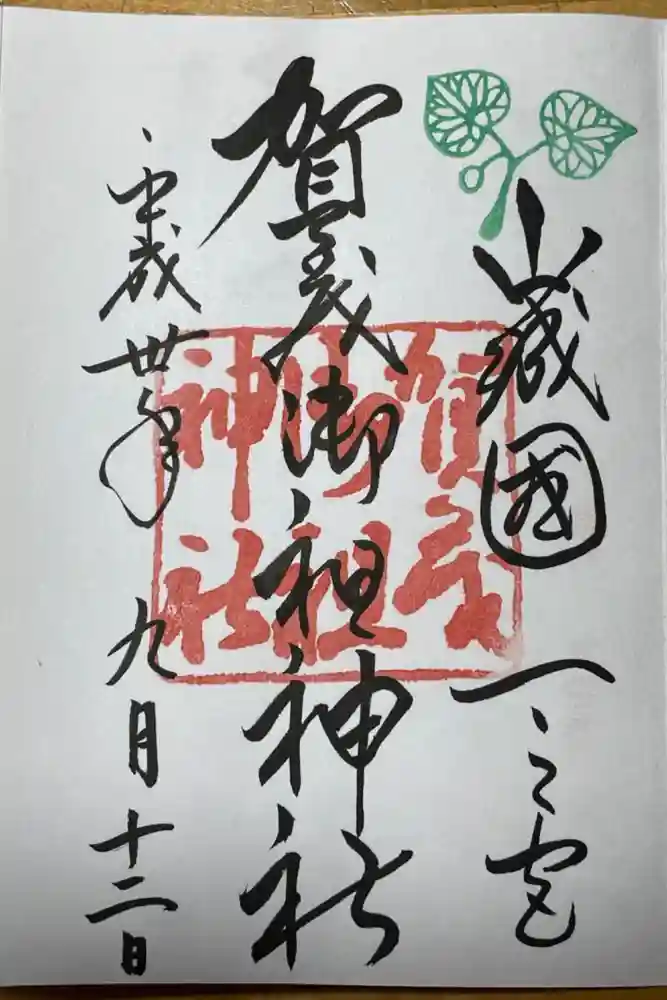 山城國一之宮
賀茂御祖神社
平成丗年九月十二日
賀茂
御祖
神社